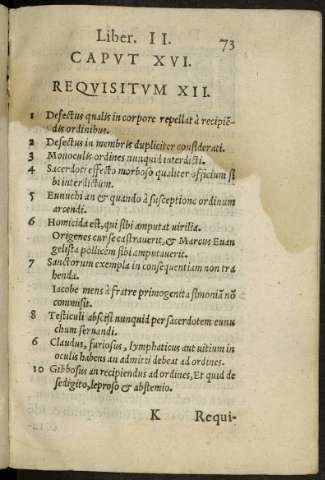 Liber. II. 73
CAPVT XVI.
REQVISITVM XII.
1 Defectus qualis in corpore repellat à recipiẽ-
dis ordinibus.
2 Defectus in membris dupliciter considerati.
3 Monoculis ordines nunquid interdicti.
4 Sacerdoti effecto morboso qualiter officium si
bi interdictum.
5 Eunuchi an & quando à susceptione ordinum
arcendi.
6 Homicida est, qui sibi amputat uirilia.
Origenes cur se castrauerit, & Marcus Euan
gelista pollicem sibi amputauerit.
7 Sanctorum exempla in consequentiam non tra
henda.
Iacobe mens à fratre primogenita simoniã nõ
commisit.
8 Testiculi abscissi nunquid per sacerdotem eunu
chum seruandi.
6 Claudus, furiosus, lymphaticus aut uitium in
oculis habens an admitti debeat ad ordines.
10 Gibbosus an recipiendus ad ordines, Et quid de
sedigito, leproso & abstemio.
K Requi-